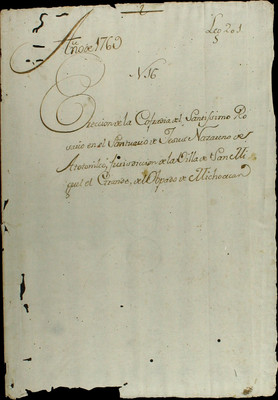 Leg 201
Año de 1769
N. 16
Ereccion de la Cofardia del Santissimo Ro
sario en el Santuario de Jesus Nazareno de
Atotonilco, Jurisdiccion de la Villa de San Mi
guel el Grande, de Obpado de Michoacan